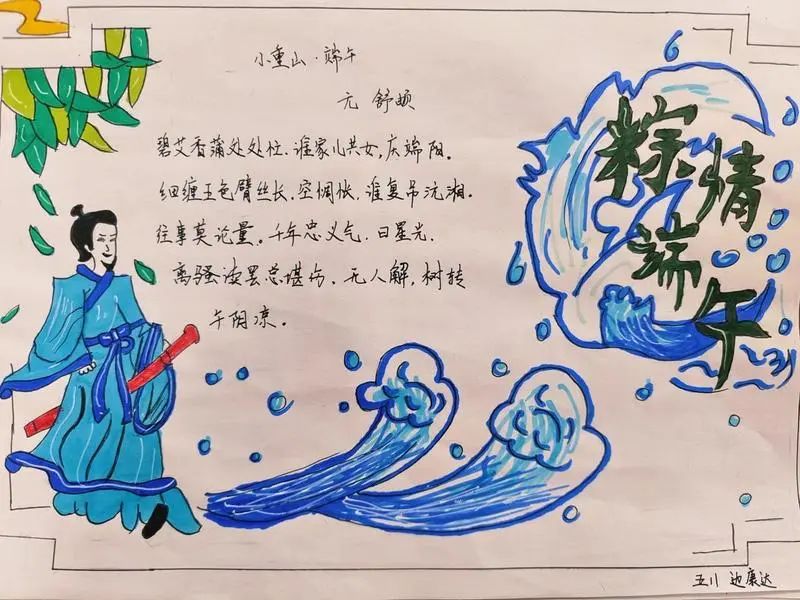 小重山·端午
元 舒頔
碧艾香蒲处处忙.谁家儿共女,庆端阳。
细缠五色臂丝长.空惆怅,谁复吊沅湘.
往事莫论量。千年忠义气,日星光.
离骚读罢总堪伤.无人解,树转
午阴凉。
粽情
端午
边康达